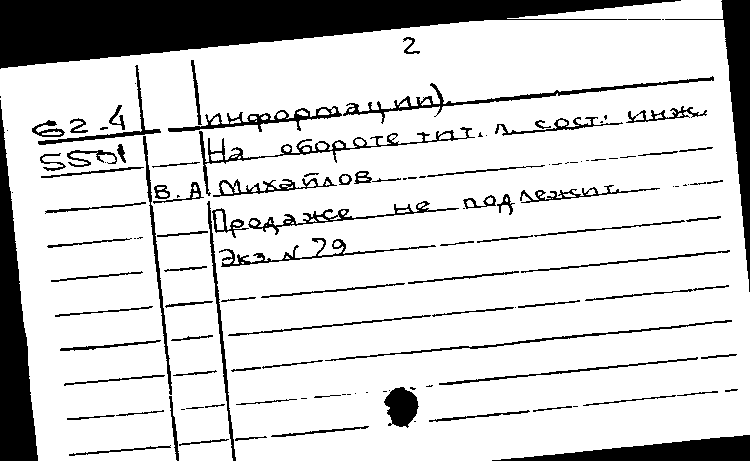 2
62-4 информации).
5501 На обороте тит. л. сост.: инж.
В. А. Михайлов.
Продаже не подлежит.
Экз. № 79